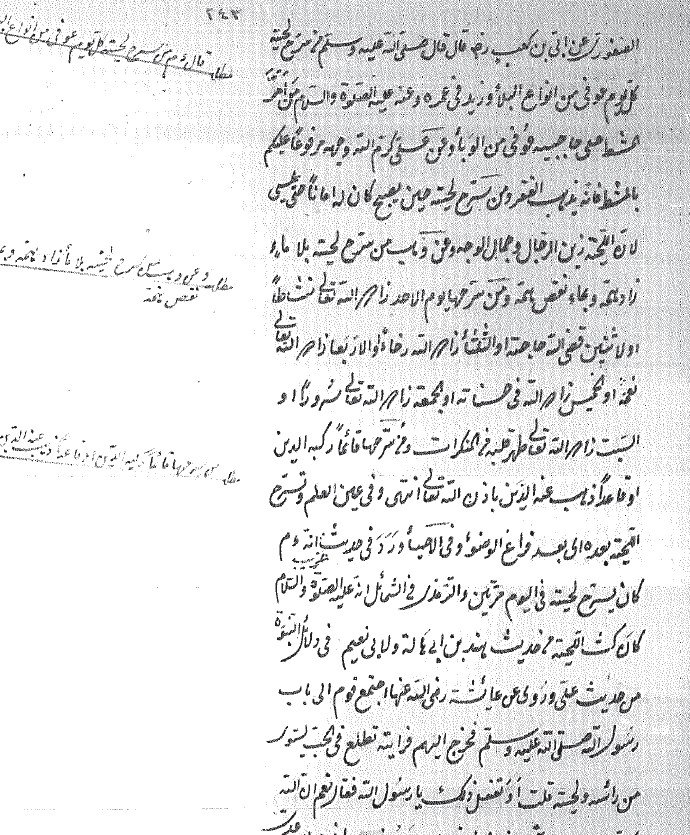 ٢٤٣
الصفورى عن ابى بن كعب رضه قال قال صلى الله عليه وسلم من سرح لحيته
كل يوم عوفى من انواع البلاء وزيد فى عمره وعنه عليه الصلوة والسلام من امر
المشط على حاجبيه عوفى من الوباء وعن على كرم الله وجهه مرفوعا عليكم
بالمشط فانه يذهب الفقر ومن سرح لحيته حين يصبح كان له امانا حتى يمسى
لان اللحية زين الرجال وجمال الوجه وعن وهب من سرح لحيته بلا ماء
زاد همه وبماء نقص همه ومن سرحها يوم الاحد زاده الله تعالى نشاطا
او لاثنين قضى الله حاجته او الثلثا زاده الله رخاء او الاربعا زاده الله تعالى
نعمة او الخميس زاد الله فى حسناته او الجمعة زاده الله تعالى سرورا او
السبت زاد الله تعالى طهر قلبه من المنكرات ومن سرحها قائما ركبه الدين
او قاعدا ذهب عنه الدين باذن الله تعالى انتهى وفى عين العلم وتسرح
اللحية بعده الى بعد فراغ الوضوء وفى الاحياء ورد فى حديث غريب انه ءم
كان يسرح لحيته فى اليوم مرتين والترمذى فى الشمائل انه عليه الصلوة والسلام
كان كث اللحية من حديث هند بن ابى هالة ولابى نعيم فى دلائل النبوة
من حديث على وروى عن عائشة رضى الله عنها اجتمع قوم الى باب
رسول الله صلى الله عليه وسلم فخرج اليهم فرايته تطلع فى الحب ليسوى
من رائسه ولحيته قلت او تفعل ذلك يا رسول الله فقال نعم ان الله
مطلب قال ءم من سرح لحيته كل يوم عوفى من انواع
مطلب وعن وهب من سرح لحيته بلا ماء زاد همه
نقص همه
مطلب من سرحها قائما ركبه الدين او قاعدا ذهب عنه الدين